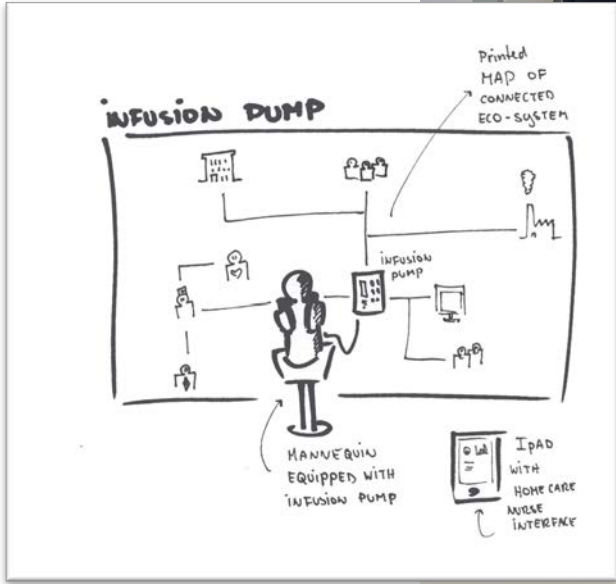 Printed
MAP OF
CONNECTED
ECO-SYSTEM
INFUSION PUMP
INFUSION
PUMP
MANNEQUIN
EQUIPPED WITH
INFUSION PUMP
IPAD
WITH
HOME CARE
NURSE
INTERFACE